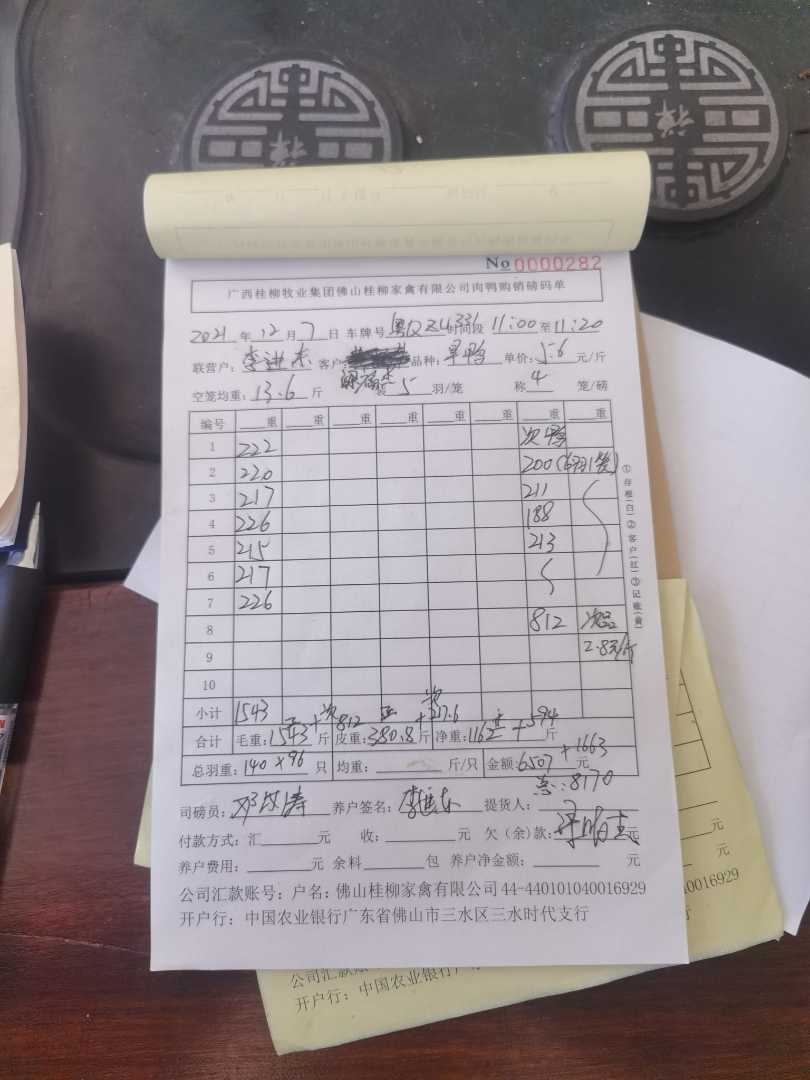 No 0000282
广西桂柳牧业集团佛山桂柳家禽有限公司肉鸭购销磅码单
2021 年 12 月 7 日 车牌号 粤Q 时间段 11:00 至 11:20
联营户: 李进东 客户 品种: 旱鸭 单价: 5.6 元/斤
空笼均重: 13.6 斤 装 5 羽/笼 称 4 笼/磅
编号 重 重 重 重 重 重 重 重
1 222 次鸭
2 220 200
3 217 211
4 226 188
5 215 213
6 217
7 226
8 812 次品
9 2.8元/斤
10
小计 1543
正+次812 正 次+217.6 正+594
合计 毛重: 1543 斤 皮重: 380.8 斤 净重: 1162 斤
总羽重: 140+96 只 均重: 斤/只 金额: 6507+1663 元
总: 8170
司磅员: 邓 涛 养户签名: 李进东 提货人:
付款方式: 汇 元 收: 元 欠(余)款: 元
养户费用: 元 余料 包 养户净金额: 元
公司汇款账号: 户名: 佛山桂柳家禽有限公司44-440101040016929
开户行: 中国农业银行广东省佛山市三水区三水时代支行
①存根(白)②客户(红)③记账(黄)
元
元
0016929
公司汇款
开户行: 中国农业银行广